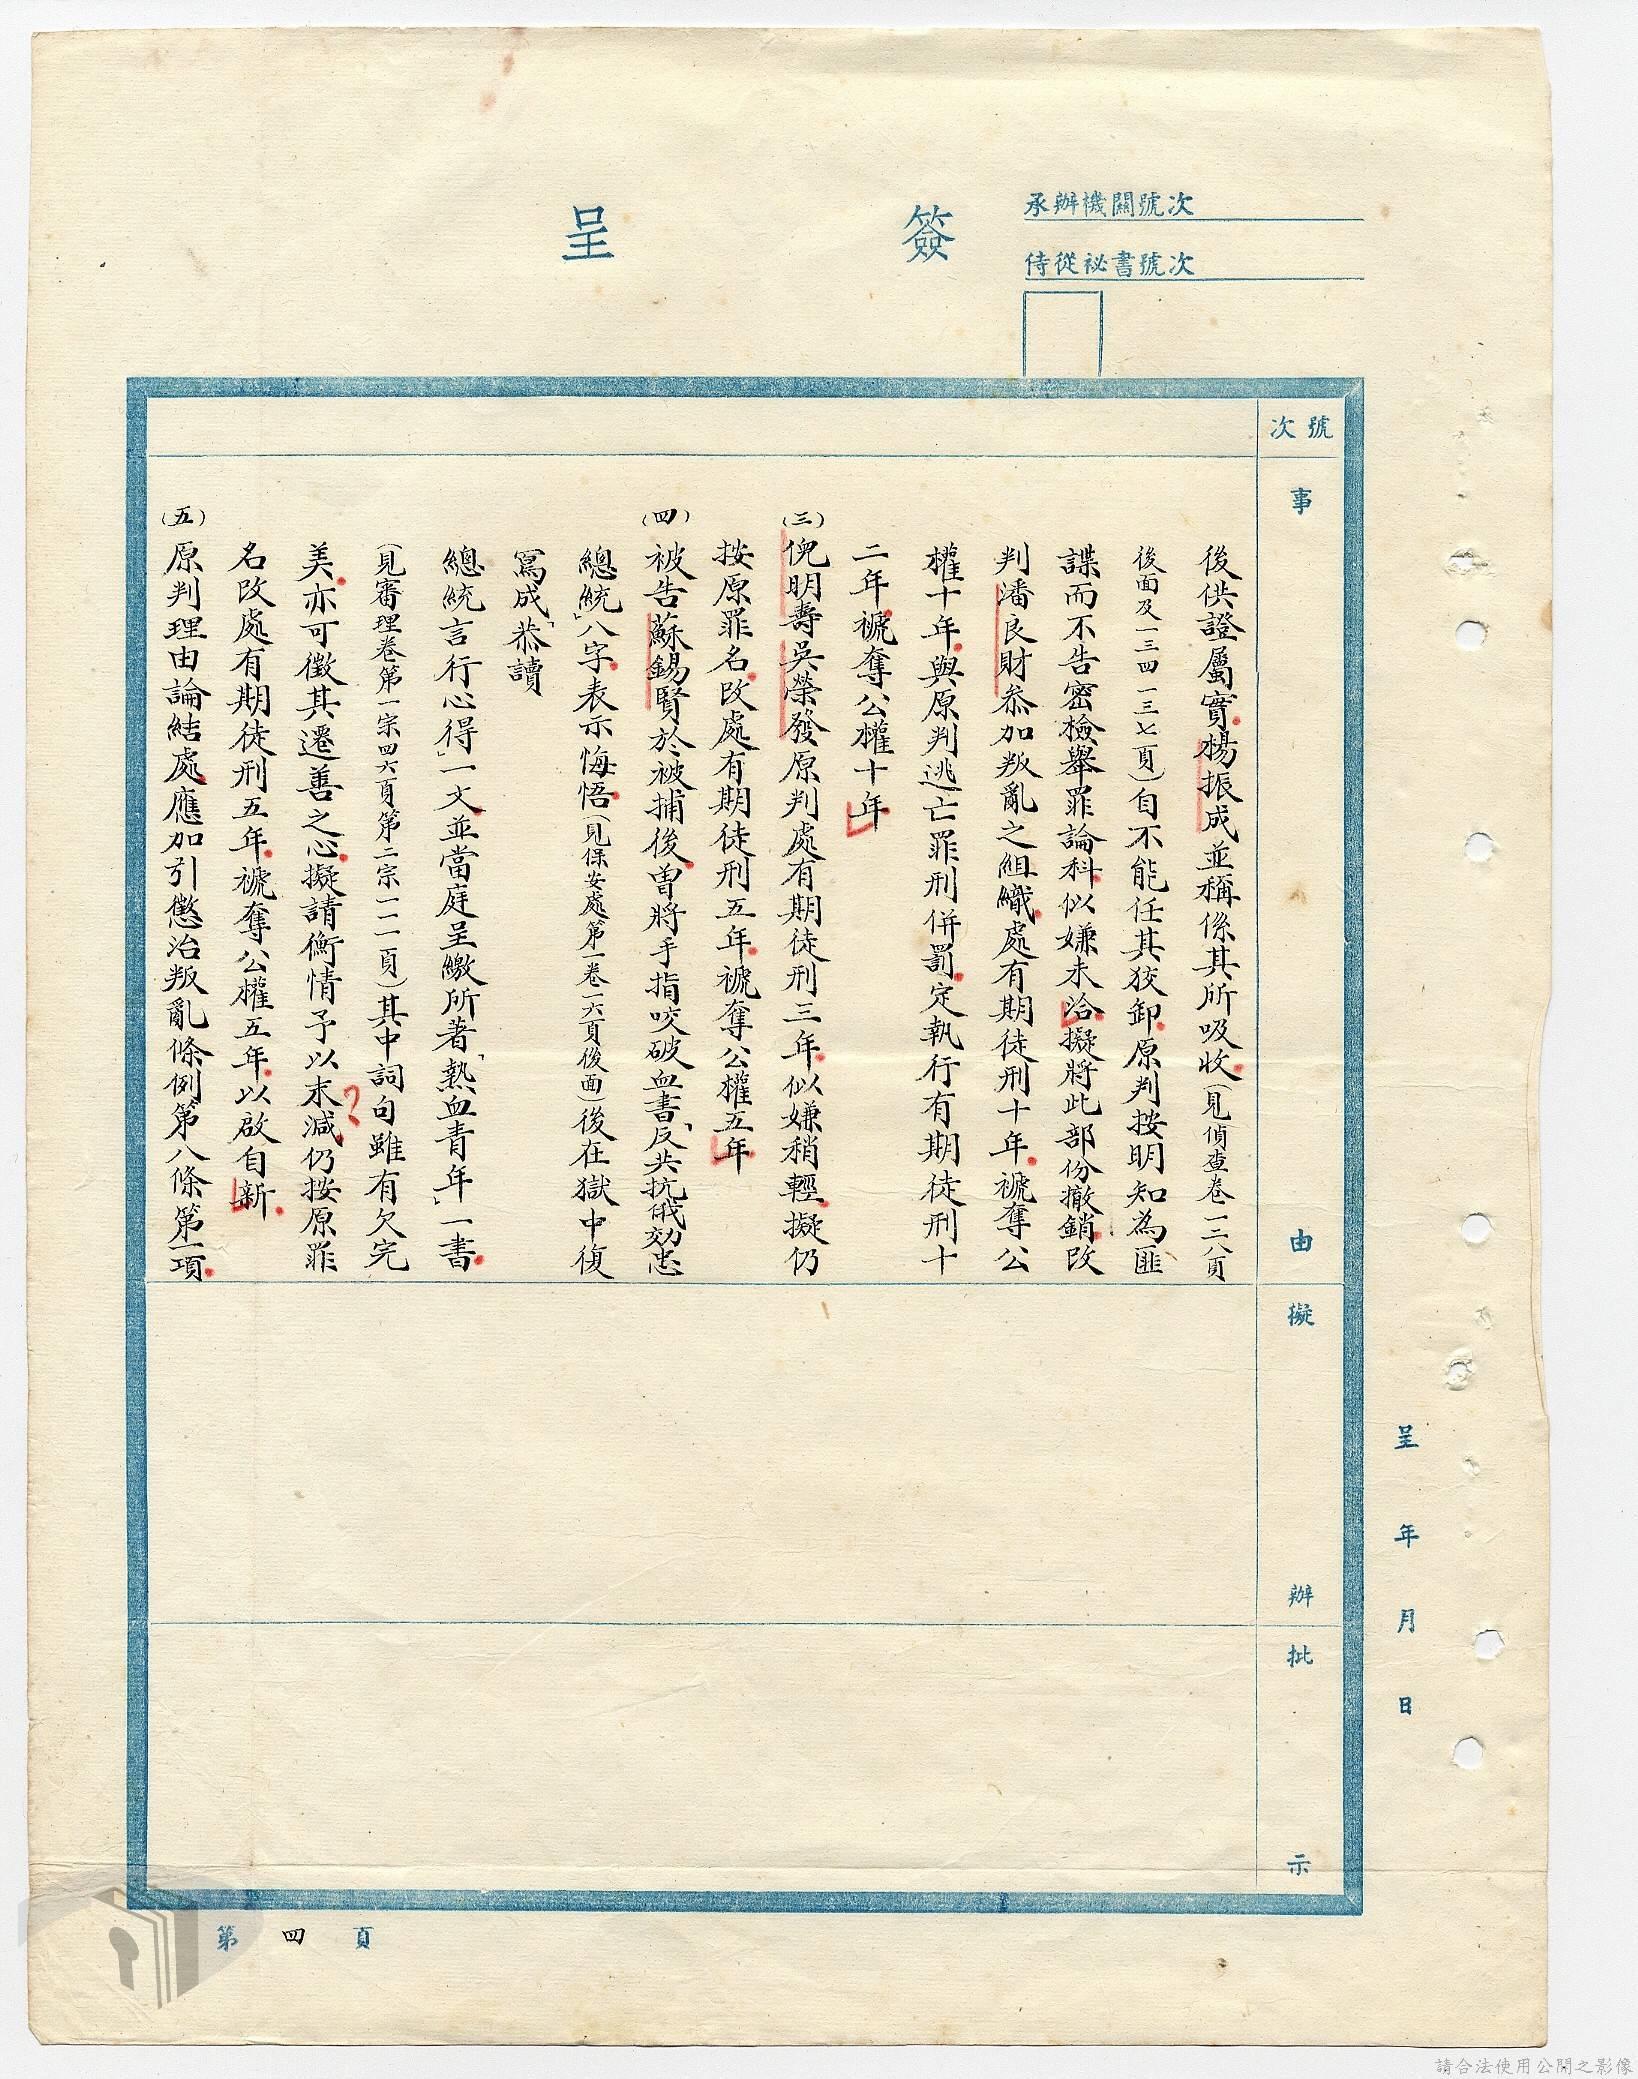 簽呈
承辦機關號次
侍從祕書號次
號次
事由
擬辦
批示
呈 年 月 日
後供證屬實楊振成並稱係其所吸收(見偵查卷一二八頁
後面及一三四一三七頁)自不能任其狡卸原判按明知為匪
諜而不告密檢舉罪論科似嫌未洽擬將此部份撤銷改
判潘良財叅加叛亂之組織處有期徒刑十年褫奪公
權十年與原判逃亡罪刑併罰定執行有期徒刑十
二年褫奪公權十年
(三)倪明壽吳榮發原判處有期徒刑三年似嫌稍輕擬仍
按原罪名改處有期徒刑五年褫奪公權五年
(四)被告蘇錫賢於被捕後曾將手指咬破血書「反共抗俄効忠
總統」八字表示悔悟(見保安處第一卷一六頁後面)後在獄中復
寫成「恭讀
總統言行心得」一文並當庭呈繳所著「熱血青年」一書
(見審理卷第一宗四六頁第二宗一一一頁)其中詞句雖有欠完
美亦可徵其遷善之心擬請衡情予以末減仍按原罪
名改處有期徒刑五年褫奪公權五年以啟自新
(五)原判理由論結處應加引懲治叛亂條例第八條第一項
?
第四頁
請合法使用公開之影像